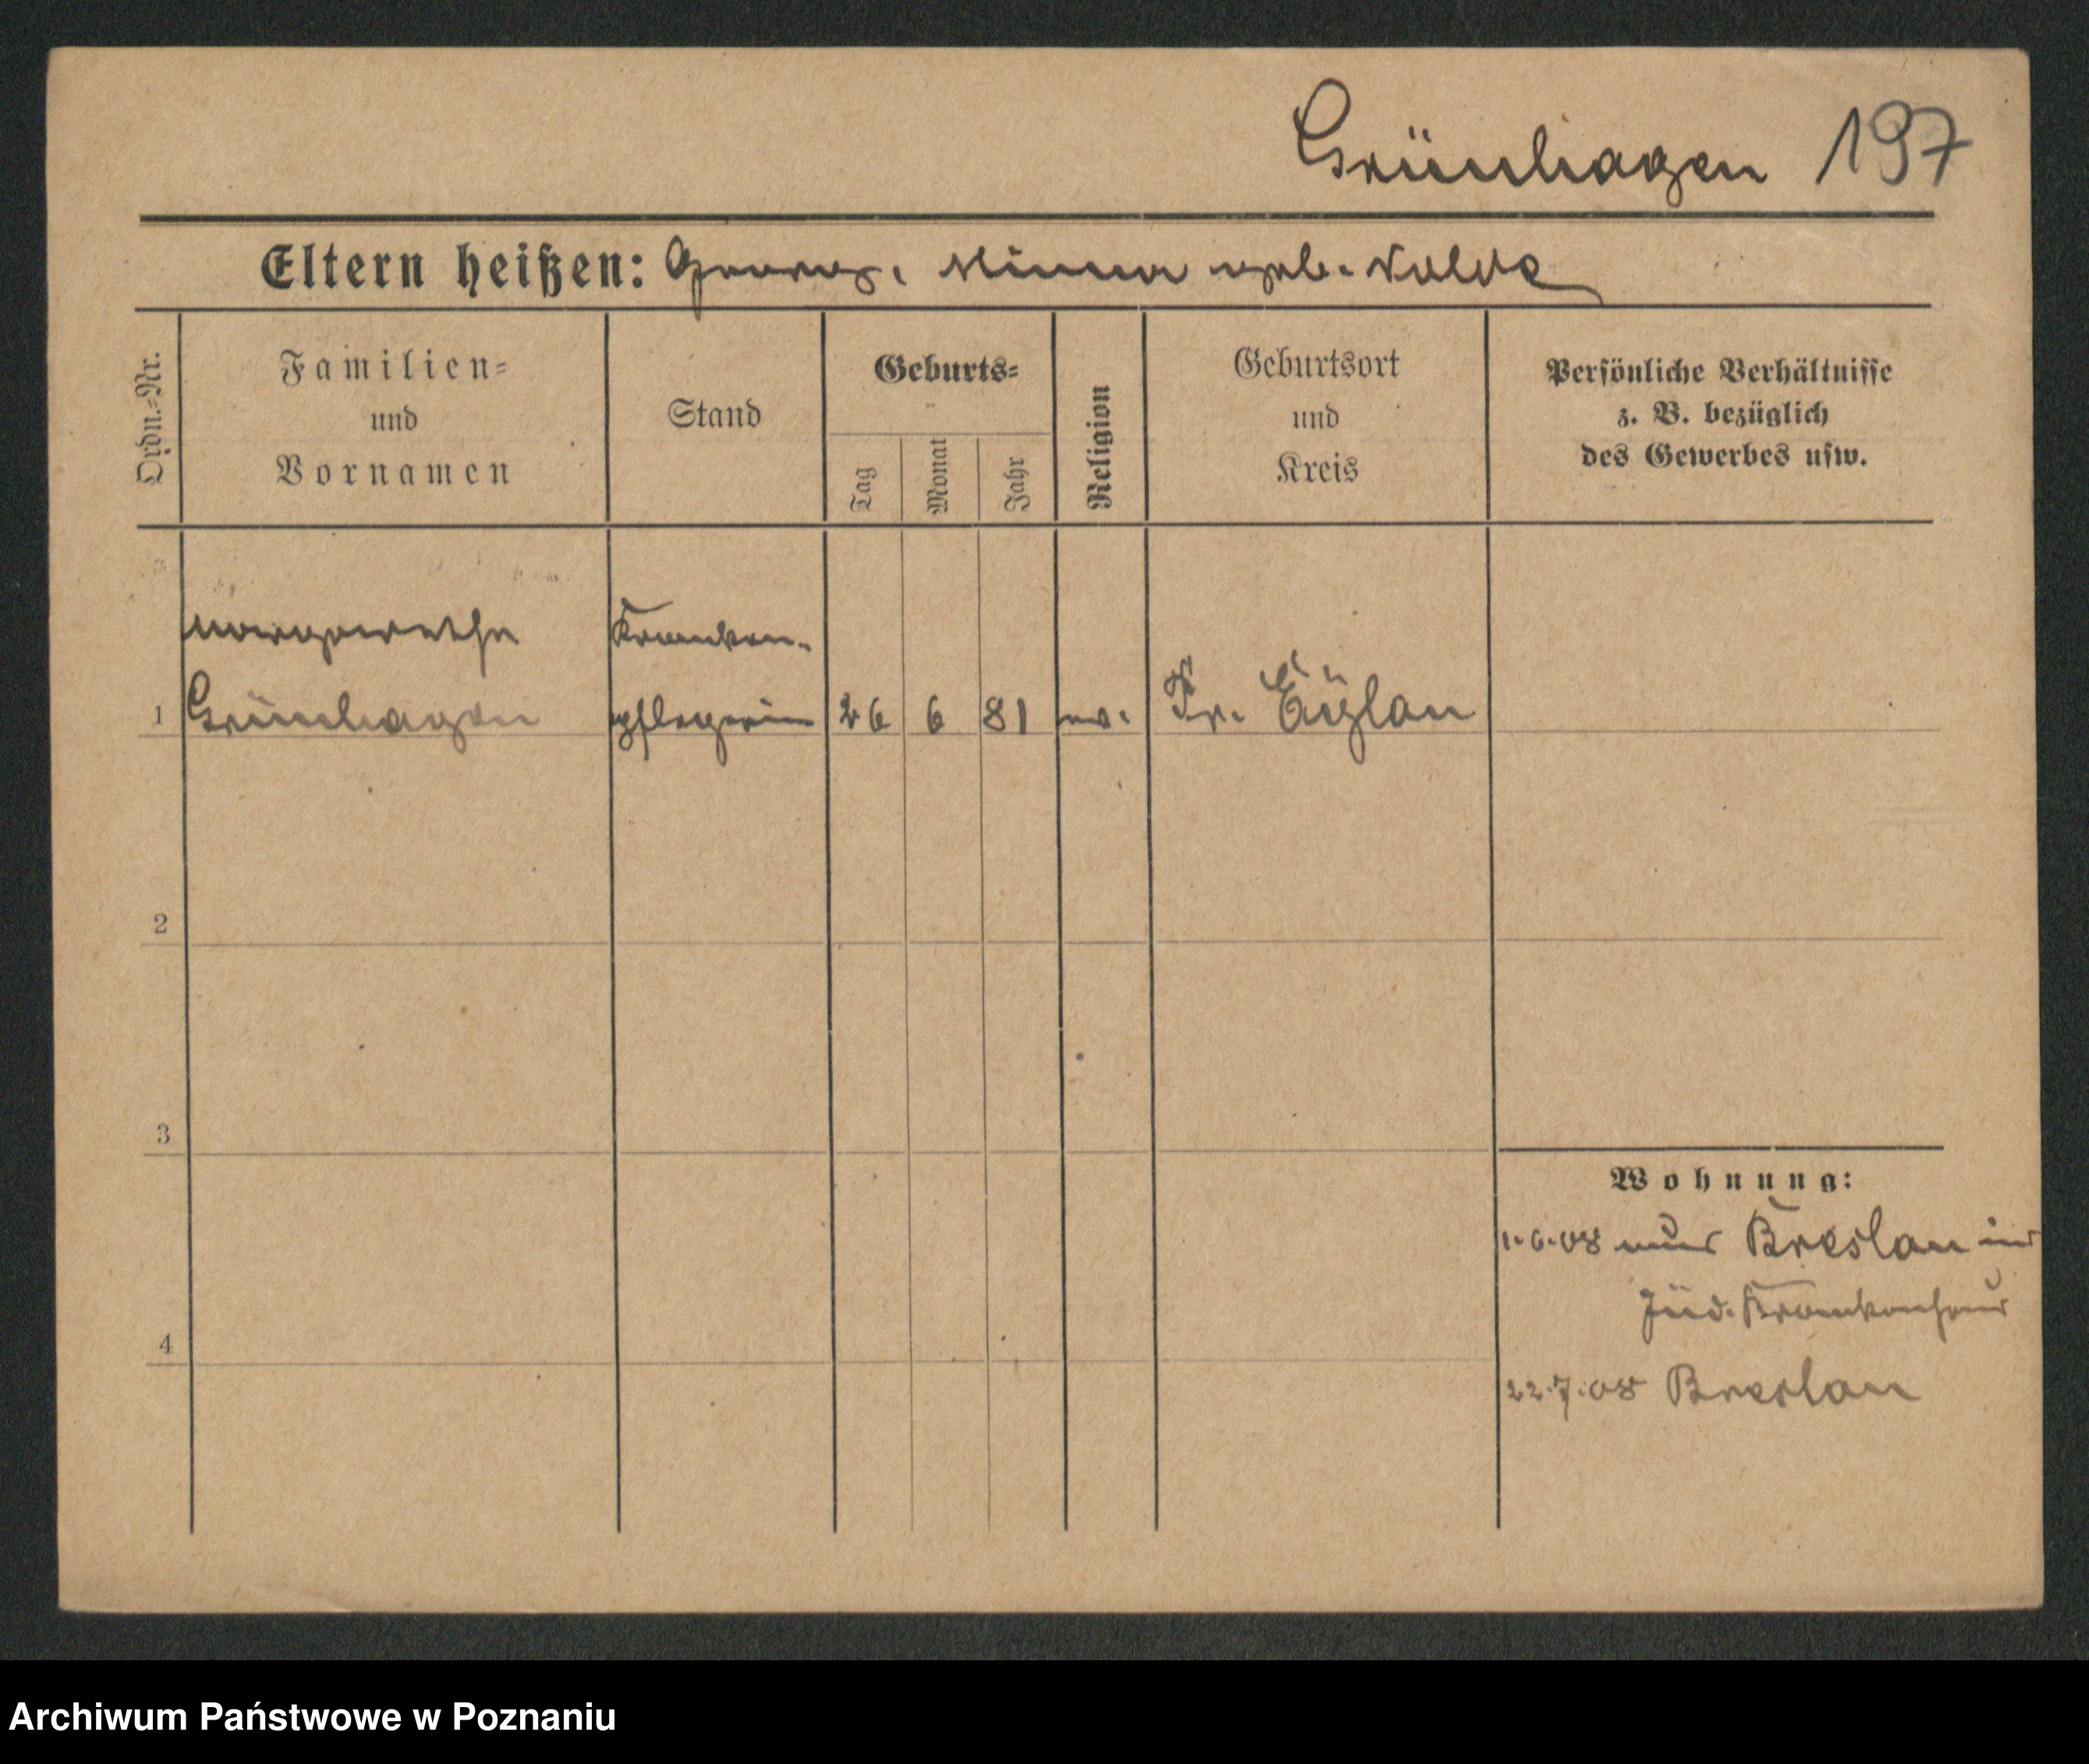 Grünhagen 197
Eltern heißen: Georg, Minna geb. Nolde
Ordn.=Nr.
Familien=
und
Vornamen
Stand
Geburts=
Tag
Monat
Jahr
Religion
Geburtsort
und
Kreis
Persönliche Verhältnisse
z. B. bezüglich
des Gewerbes usw.
Margarethe Kranken-
1 Grünhagen pflegerin 26 6 81 ev. Pr. Eylau
2
3
4
Wohnung:
1.6.08 aus Breslau in
Jüd. Krankenhaus
22.7.08 Breslau
Archiwum Państwowe w Poznaniu